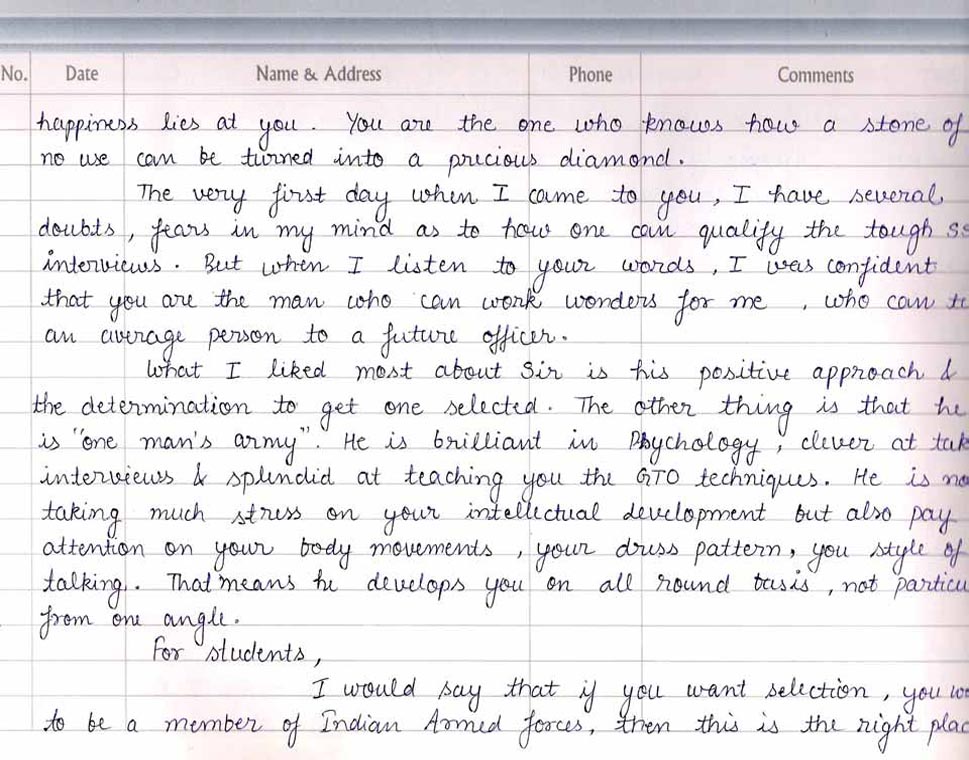 No. Date Name & Address Phone Comments
happiness lies at you. You are the one who knows how a stone of
no use can be turned into a precious diamond.
The very first day when I came to you, I have several
doubts, fears in my mind as to how one can qualify the tough
interviews. But when I listen to your words, I was confident
that you are the man who can work wonders for me, who can
an average person to a future officer.
What I liked most about Sir is his positive approach &
the determination to get one selected. The other thing is that he
is "one man's army". He is brilliant in Psychology, clever at
interviews & splendid at teaching you the GTO techniques. He is
taking much stress on your intellectual development but also pay
attention on your body movements, your dress pattern, you style of
talking. That means he develops you on all round basis, not
from one angle.
For students,
I would say that if you want selection, you
to be a member of Indian Armed forces, then this is the right